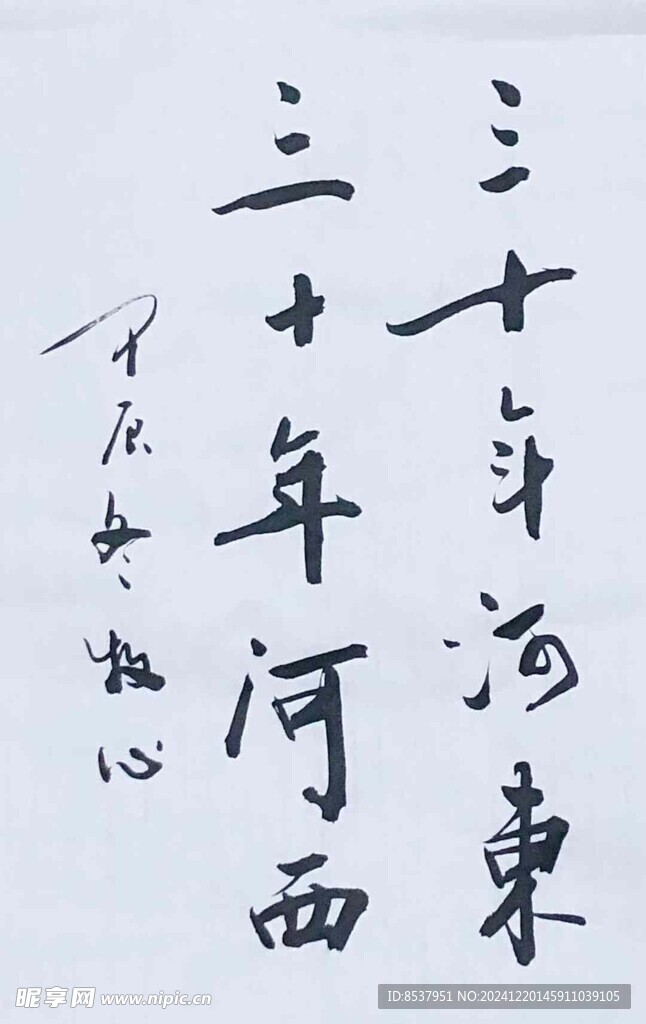 三十年河東
三十年河西
甲辰冬牧心
昵享网 www.nipic.cn
ID:8537951 NO:20241220145911039105